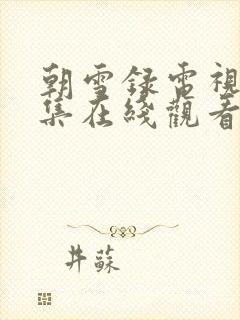 朝雪録電視
集在綫觀看
井蘇